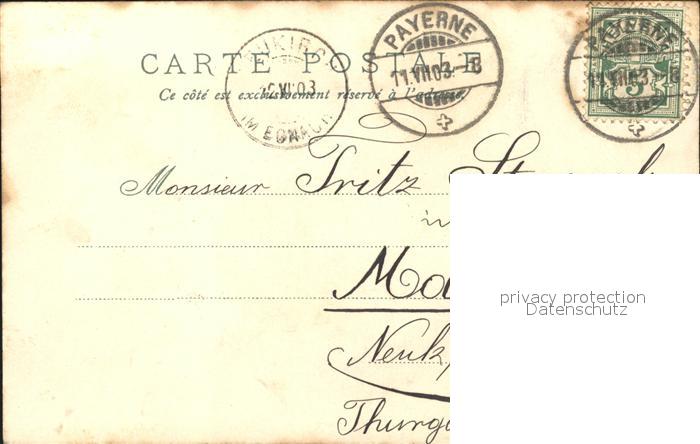 CARTE POSTALE
Ce côté est exclusivement réservé à l'adresse
NEUKIRCH
12.VII.03
IM EGNACH
PAYERNE
11.VII.03.-8
PAYERNE
11.VII.03.-8
5
Monsieur Fritz
in
Ma
Neuk
Thurg
privacy protection
Datenschutz